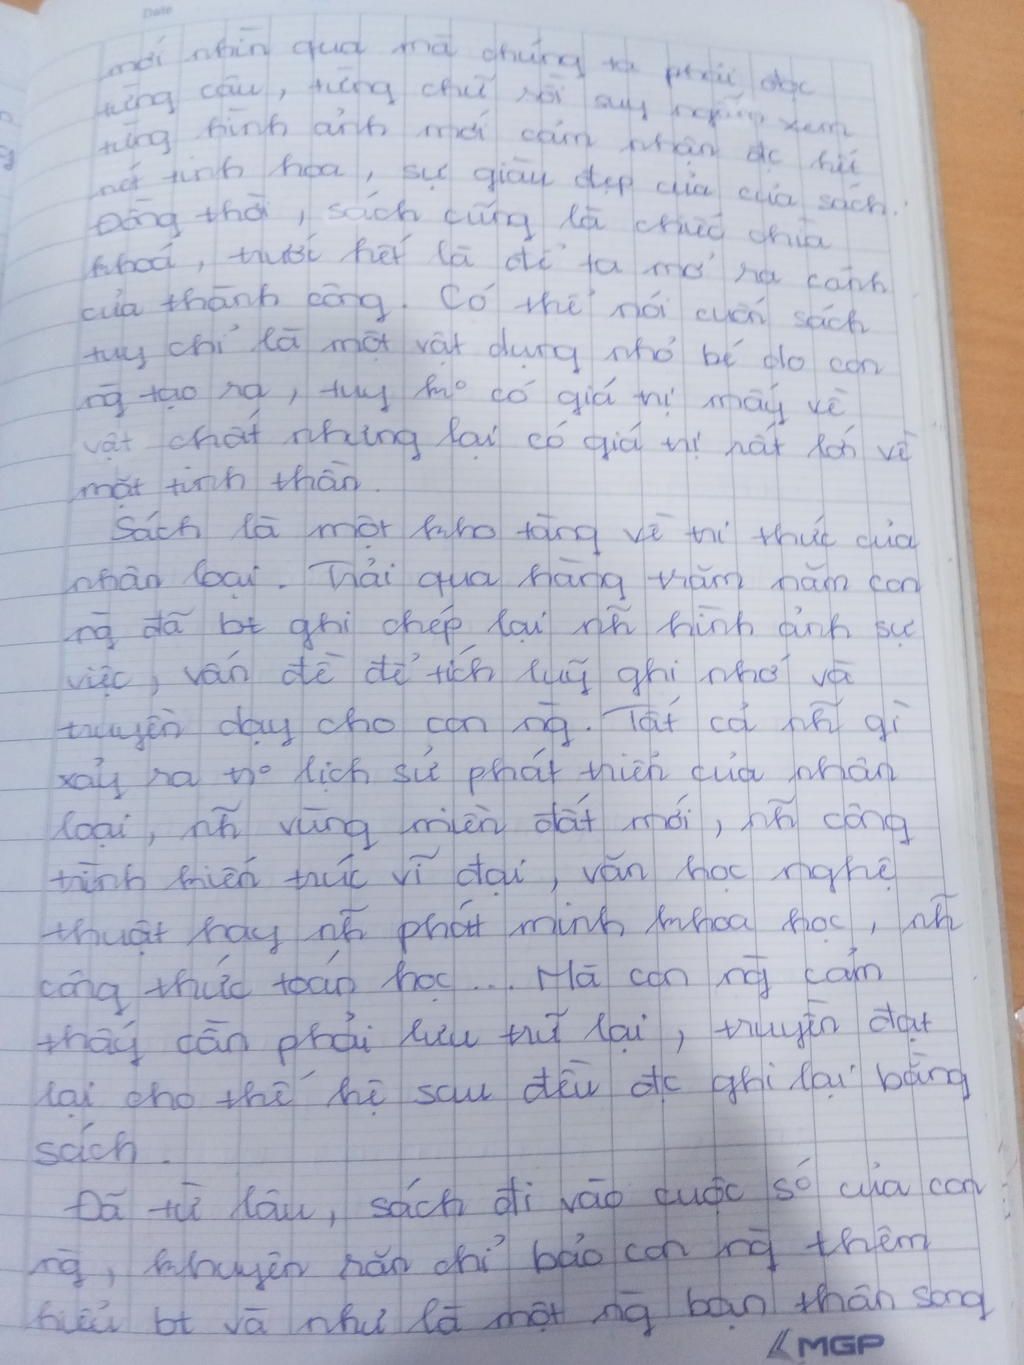 Date
mới nhìn qua mà chúng ta phải đọc
từng câu, từng chữ rồi suy ngẫm xem
từng hình ảnh mới cảm nhận đc hết
nét tinh hoa, sự giàu đẹp của của sách.
Đồng thời, sách cũng là chiếc chìa
khoá, trước hết là để ta mở ra cánh
cửa thành công. Có thể nói cuốn sách
tuy chỉ là một vật dụng nhỏ bé do con
ng̃ tạo ra, tuy ko có giá trị mấy về
vật chất nhưng lại có giá trị rất lớn về
mặt tinh thần.
Sách là một kho tàng về tri thức của
nhân loại. Trải qua hàng trăm năm con
ng̃ đã bt ghi chép lại nh̃ hình ảnh sự
việc, vấn đề để tích luỹ ghi nhớ và
truyền dạy cho con ng̃. Tất cả nh̃ gì
xảy ra tro lịch sử phát triển của nhân
loại, nh̃ vùng miền đất mới, nh̃ công
trình kiến trúc vĩ đại, văn học nghệ
thuật hay nh̃ phát minh khoa học, nh̃
công thức toán học... Mà con ng̃ cảm
thấy cần phải lưu trữ lại, truyền đạt
lại cho thế hệ sau đều đc ghi lại bằng
sách.
Đã từ lâu, sách đi vào cuộc số của con
ng̃, khuyên răn chỉ bảo con ng̃ thêm
hiểu bt và như là một ng̃ bạn thân song
MGP